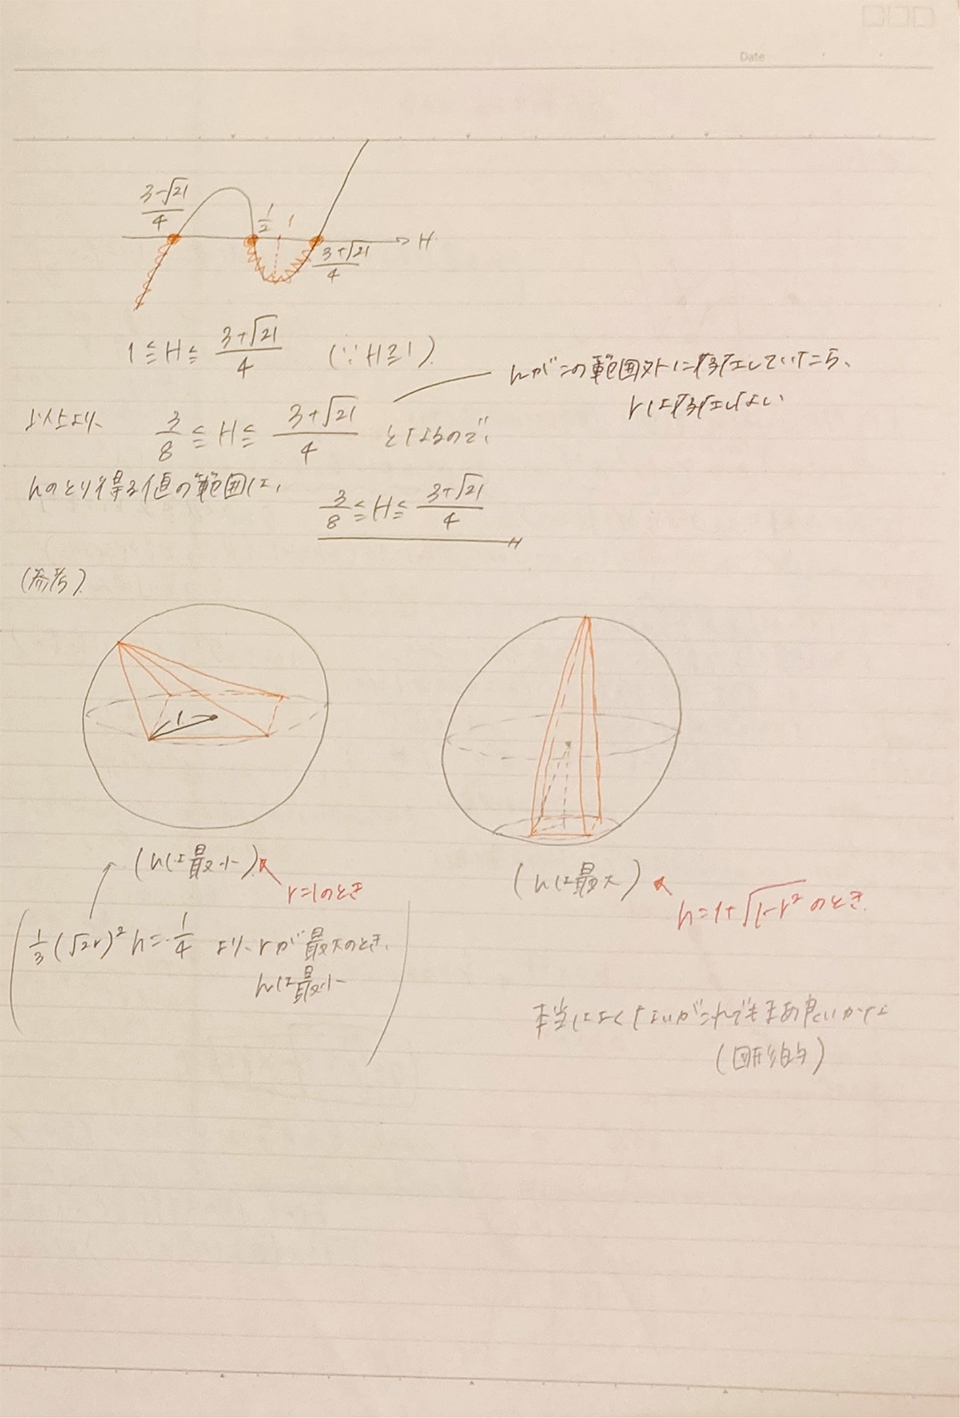 Date
(3-√21)/4
1/2
1
(3+√21)/4
H
1≦H≦(3+√21)/4 (∵H≧1)
hがこの範囲外に存在していたら、
rは存在しない
以上より、3/8≦H≦(3+√21)/4 となるので、
hのとり得る値の範囲は、
3/8≦H≦(3+√21)/4
(参考)
1
(hは最小)
r=1のとき
(hは最大)
h=1+√(1-r²)のとき
(1/3(√2r)²h=1/4 より、rが最大のとき、
hは最小)
本当はよくないがこれでもまあ良いかな
(図形的)